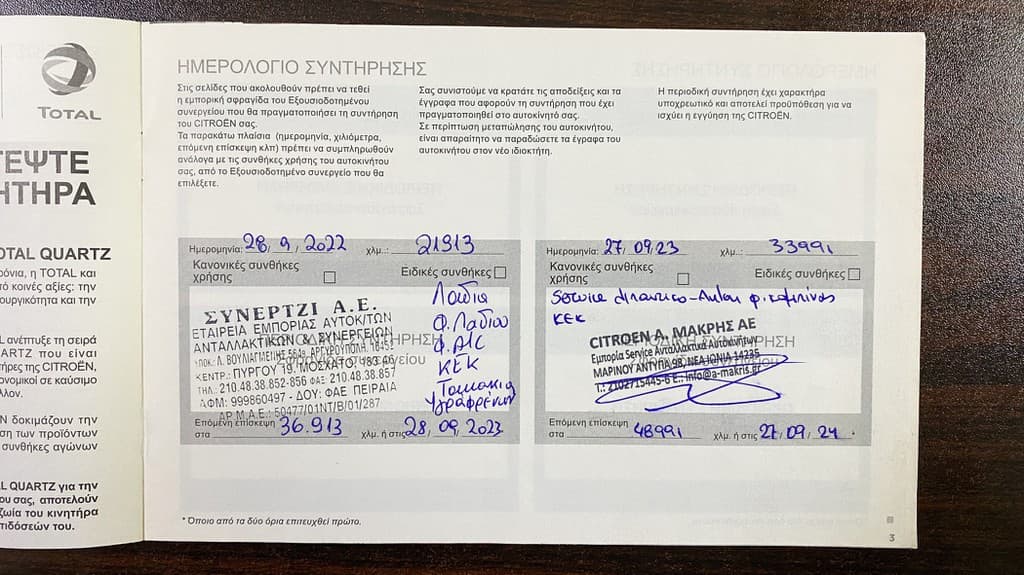 TOTAL
ΤΕΨΤΕ
ΗΤΗΡΑ
OTAL QUARTZ
όνια, η TOTAL και
κοινές αξίες: την
ουργικότητα και την
L ανέπτυξε τη σειρά
ARTZ που είναι
τήρες της CITROËN,
νομικοί σε καύσιμο
λλον.
N δοκιμάζουν την
ση των προϊόντων
συνθήκες αγώνων
L QUARTZ για την
ου σας, αποτελούν
ζωία του κινητήρα
πιδόσεών του.
ΗΜΕΡΟΛΟΓΙΟ ΣΥΝΤΗΡΗΣΗΣ
Στις σελίδες που ακολουθούν πρέπει να τεθεί
η εμπορική σφραγίδα του Εξουσιοδοτημένου
συνεργείου που θα πραγματοποιήσει τη συντήρηση
του CITROËN σας.
Τα παρακάτω πλαίσια (ημερομηνία, χιλιόμετρα,
επόμενη επίσκεψη κλπ) πρέπει να συμπληρωθούν
ανάλογα με τις συνθήκες χρήσης του αυτοκινήτου
σας, από το Εξουσιοδοτημένο συνεργείο που θα
επιλέξετε.
Σας συνιστούμε να κρατάτε τις αποδείξεις και τα
έγγραφα που αφορούν τη συντήρηση που έχει
πραγματοποιηθεί στο αυτοκίνητό σας.
Σε περίπτωση μεταπώλησης του αυτοκινήτου,
είναι απαραίτητο να παραδώσετε τα έγραφα του
αυτοκινήτου στον νέο ιδιοκτήτη.
Η περιοδική συντήρηση έχει χαρακτήρα
υποχρεωτικό και αποτελεί προϋπόθεση για να
ισχύει η εγγύηση της CITROËN.
Ημερομηνία: 28/9/2022 χλμ.: 21913
Κανονικές συνθήκες χρήσης
Ειδικές συνθήκες
ΣΥΝΕΡΤΖΙ Α.Ε.
ΕΤΑΙΡΕΙΑ ΕΜΠΟΡΙΑΣ ΑΥΤΟΚ/ΤΩΝ
ΑΝΤΑΛΛΑΚΤΙΚΩΝ & ΣΥΝΕΡΓΕΙΩΝ
ΥΠΟΚ.: Λ. ΒΟΥΛΙΑΓΜΕΝΗΣ 56Αα, ΑΡΓΥΡΟΥΠΟΛΗ
ΚΕΝΤΡ.: ΠΥΡΓΟΥ 19, ΜΟΣΧΑΤΟ: 183 46
ΤΗΛ.: 210.48.38.852-856 ΦΑΞ: 210.48.38.857
ΑΦΜ: 999860497 - ΔΟΥ: ΦΑΕ ΠΕΙΡΑΙΑ
ΑΡ.Μ.Α.Ε.: 50477/01ΝΤ/Β/01/287
Λάδια
Φ. Λαδιού
Φ. A/C
ΚΕΚ
Τακάκια
Επόμενη επίσκεψη
στα 36.913 χλμ. ή στις 28/09/2023
Ημερομηνία: 27/09/23 χλμ.: 33991
Κανονικές συνθήκες χρήσης
Ειδικές συνθήκες
Service
ΚΕΚ
CITROEN Α. ΜΑΚΡΗΣ ΑΕ
Εμπορία Service Ανταλλακτικά Αυτοκινήτων
ΜΑΡΙΝΟΥ ΑΝΤΥΠΑ 98, ΝΕΑ ΙΩΝΙΑ 14235
Τ.: 2102715445-6 Ε.: info@a-makris.gr
Επόμενη επίσκεψη
στα 48991 χλμ. ή στις 27/09/24.
* Όποιο από τα δύο όρια επιτευχθεί πρώτο.
3